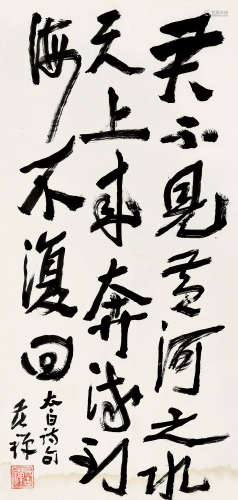 君不見黃河之水
天上來奔流到
海不復回
太白詩句